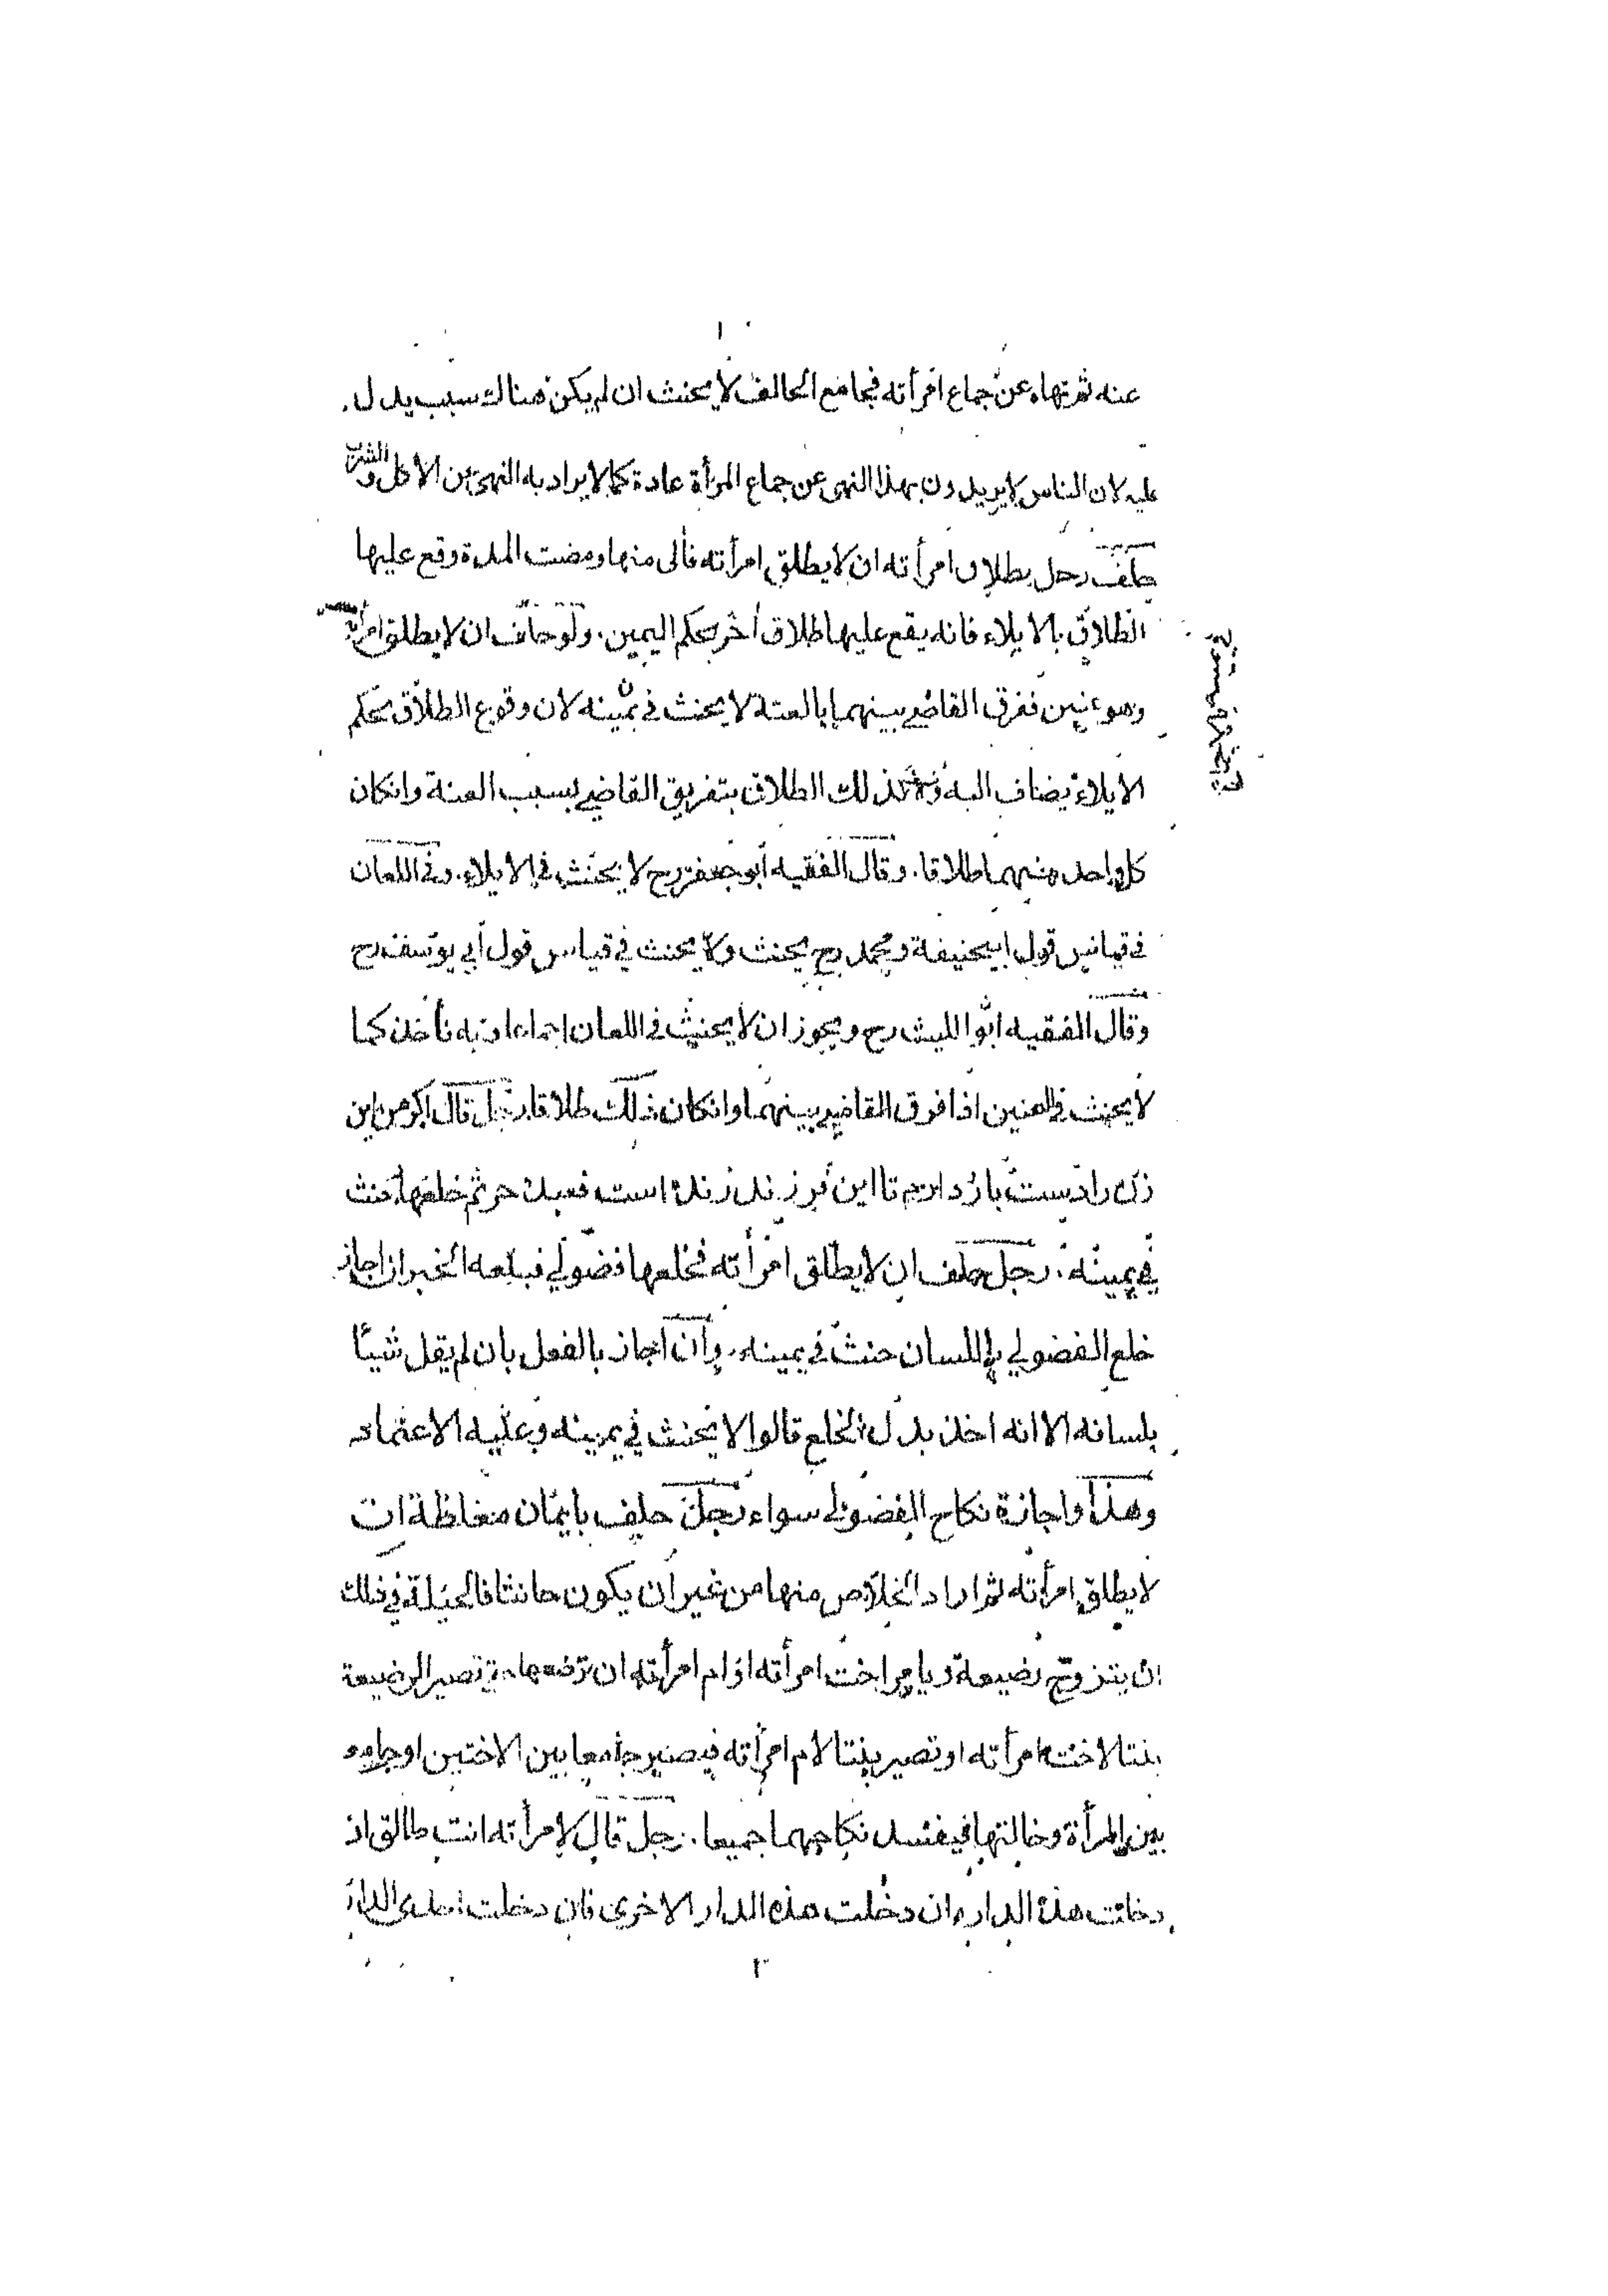 عنه ثم نهاه عن جماع امرأته فجامع الحالف لا يحنث ان لم يكن هناك سبب يدل
عليه لان الناس لا يريدون بهذا النهى عن جماع المرأة عادة كما لا يراد به النهى عن الاكل والشرب
حلف رجل بطلاق امرأته ان لا يطلق امرأته فآلى منها ومضت المدة وقع عليها
الطلاق بالايلاء فانه يقع عليها طلاق أخر بحكم اليمين. ولو حلف ان لا يطلق امرأته
وهو عنين ففرق القاضي بينهما بالعنة لا يحنث في يمينه لان وقوع الطلاق بحكم
الايلاء يضاف اليه كذلك الطلاق بتفريق القاضي بسبب العنة وانكان
كل واحد منهما طلاقا. وقال الفقيه أبو جعفر رح لا يحنث في الايلاء. وفي اللعان
في قياس قول ابيحنيفة ومحمد رح يحنث ولا يحنث في قياس قول أبي يوسف رح
وقال الفقيه ابو الليث رح ويجوز ان لا يحنث في اللعان اجماعا وبه نأخذ كما
لا يحنث في العنين اذا فرق القاضي بينهما وانكان ذلك طلاقا رجل قال اكر من اين
زن را دست باز دارم تا اين فرزند زنده است فعبده حر ثم خلعها حنث
في يمينه. رجل حلف ان لا يطلق امرأته فخلعها فضولي فبلغه الخبر ان اجاز
خلع الفضولي باللسان حنث في يمينه. وان اجاز بالفعل بان لم يقل شيئا
بلسانه الا انه اخذ بدل الخلع قالوا لا يحنث في يمينه وعليه الاعتماد
وهذا واجازة نكاح الفضولي سواء رجل حلف بايمان مغلظة ان
لا يطلق امرأته ثم اراد الخلاص منها من غير ان يكون حانثا فالحيلة في ذلك
ان يتزوج رضيعة ويامر اخت امرأته او ام امرأته ان ترضعها حتى تصير الرضيعة
بنتا لاخت امرأته او تصير بنتا لام امرأته فيصير جامعا بين الاختين او جامعا
بين المرأة وخالتها فيفسد نكاحهما جميعا. رجل قال لامرأته انت طالق ان
دخلت هذه الدار وان دخلت هذه الدار الاخرى فان دخلت احدى الدار